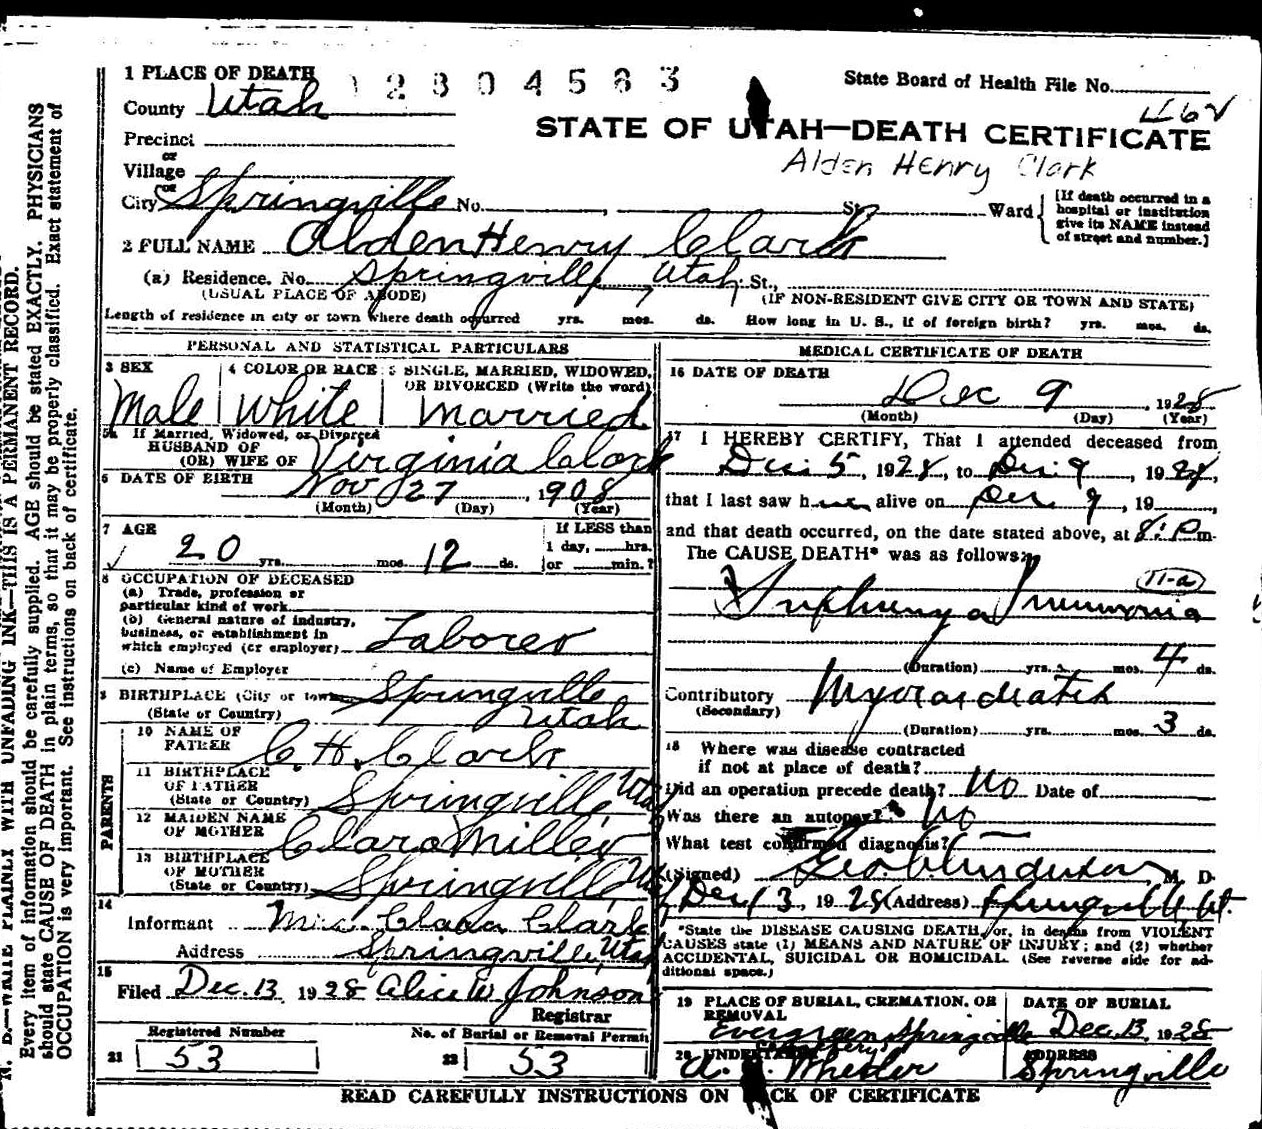 1 PLACE OF DEATH 12304583
State Board of Health File No.
County Utah
462
STATE OF UTAH—DEATH CERTIFICATE
Precinct
Alden Henry Clark
or
Village
or
City Springville No. , St., Ward
[If death occurred in a
hospital or institution
give its NAME instead
of street and number.]
2 FULL NAME Alden Henry Clark
(a) Residence. No. Springville, Utah St.,
(USUAL PLACE OF ABODE) (IF NON-RESIDENT GIVE CITY OR TOWN AND STATE)
Length of residence in city or town where death occurred yrs. mos. ds. How long in U. S., if of foreign birth? yrs. mos. ds.
PERSONAL AND STATISTICAL PARTICULARS
3 SEX
Male
4 COLOR OR RACE
White
5 SINGLE, MARRIED, WIDOWED,
OR DIVORCED (Write the word)
Married
5a If Married, Widowed, or Divorced
HUSBAND OF
(OR) WIFE OF Virginia Clark
6 DATE OF BIRTH
Nov 27, 1908
(Month) (Day) (Year)
7 AGE
20 yrs. mos. 12 ds.
If LESS than
1 day, hrs.
or min.?
8 OCCUPATION OF DECEASED
(a) Trade, profession or
particular kind of work
(b) General nature of industry,
business, or establishment in
which employed (or employer) Laborer
(c) Name of Employer
9 BIRTHPLACE (City or town) Springville
(State or Country) Utah
PARENTS
10 NAME OF
FATHER C. H. Clark
11 BIRTHPLACE
OF FATHER
(State or Country) Springville, Utah
12 MAIDEN NAME
OF MOTHER Clara Miller
13 BIRTHPLACE
OF MOTHER
(State or Country) Springville, Utah
14
Informant Mrs. Clara Clark
Address Springville, Utah
15
Filed Dec. 13 1928 Alice W Johnson
Registrar
Registered Number
21 53
No. of Burial or Removal Permit
22 53
MEDICAL CERTIFICATE OF DEATH
16 DATE OF DEATH
Dec 9, 1928
(Month) (Day) (Year)
17 I HEREBY CERTIFY, That I attended deceased from
Dec 5, 1928, to Dec 9, 1928,
that I last saw h alive on Dec 9, 19
and that death occurred, on the date stated above, at 8: P m.
The CAUSE DEATH* was as follows:
11-a
Pneumonia
(Duration) yrs. mos. 4 ds.
Contributory
(Secondary)
(Duration) yrs. mos. 3 ds.
18 Where was disease contracted
if not at place of death?
Did an operation precede death? No Date of
Was there an autopsy? No
What test confirmed diagnosis?
(Signed) Geo. Anderson M. D.
Dec 13, 1928 (Address) Springville Ut.
*State the DISEASE CAUSING DEATH, or, in deaths from VIOLENT
CAUSES state (1) MEANS AND NATURE OF INJURY; and (2) whether
ACCIDENTAL, SUICIDAL OR HOMICIDAL. (See reverse side for ad-
ditional space.)
19 PLACE OF BURIAL, CREMATION, OR
REMOVAL
Evergreen Springville
Cemetery
DATE OF BURIAL
Dec. 13, 1928
20 UNDERTAKER
Wheeler
ADDRESS
Springville
READ CAREFULLY INSTRUCTIONS ON BACK OF CERTIFICATE
N. B.—WRITE PLAINLY WITH UNFADING INK—THIS IS A PERMANENT RECORD.
Every item of information should be carefully supplied. AGE should be stated EXACTLY. PHYSICIANS
should state CAUSE OF DEATH in plain terms, so that it may be properly classified. Exact statement of
OCCUPATION is very important. See instructions on back of certificate.